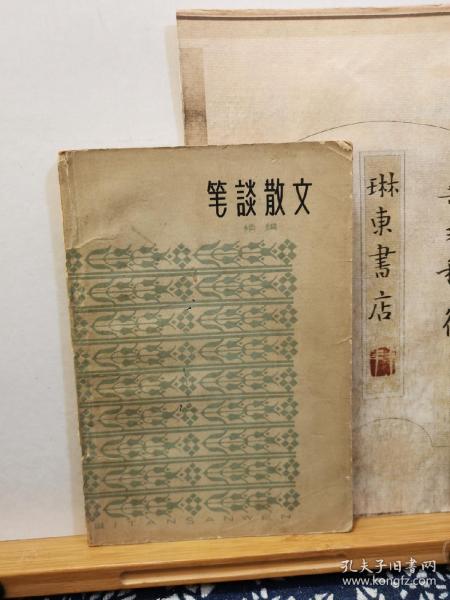 笔談散文
續編
BITANSANWEN
琳東書店
孔夫子旧书网
www.kongfz.com